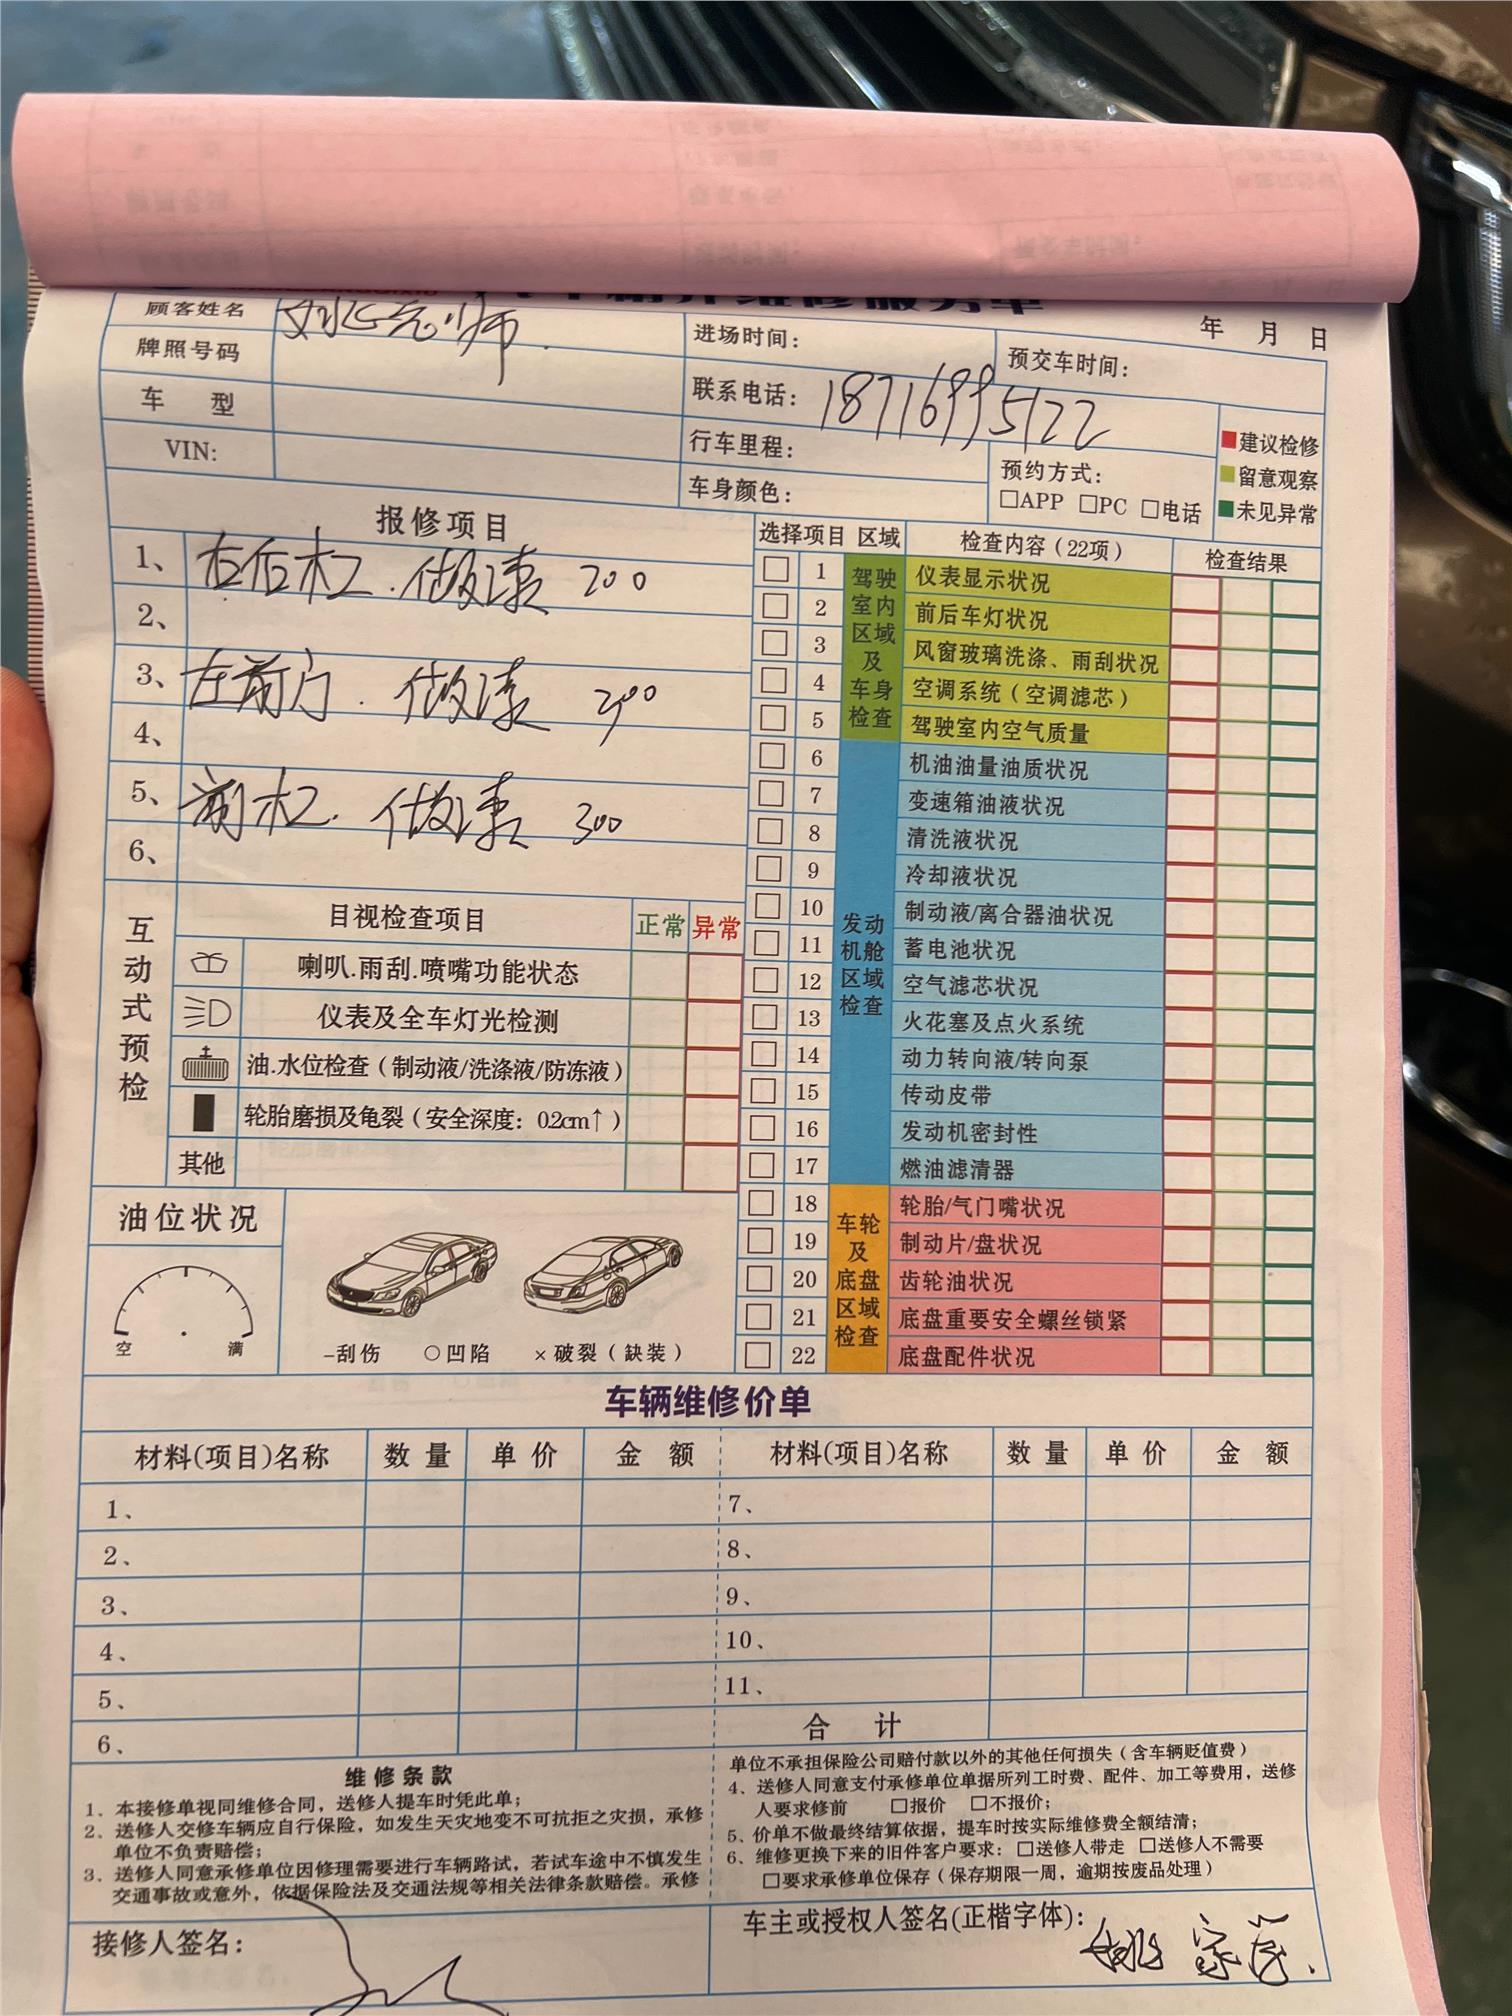 汽车精养维修服务单
年 月 日
顾客姓名 姚老师
进场时间：
预交车时间：
牌照号码
联系电话：18716995122
车 型
行车里程：
预约方式：
□APP □PC □电话
VIN:
车身颜色：
建议检修
留意观察
未见异常
报修项目
1、右后杠.做漆 200
2、
3、左前门.做漆 200
4、
5、前杠.做漆 300
6、
选择项目 区域 检查内容（22项） 检查结果
驾驶室内区域及车身检查
1 仪表显示状况
2 前后车灯状况
3 风窗玻璃洗涤、雨刮状况
4 空调系统（空调滤芯）
5 驾驶室内空气质量
发动机舱区域检查
6 机油油量油质状况
7 变速箱油液状况
8 清洗液状况
9 冷却液状况
10 制动液/离合器油状况
11 蓄电池状况
12 空气滤芯状况
13 火花塞及点火系统
14 动力转向液/转向泵
15 传动皮带
16 发动机密封性
17 燃油滤清器
车轮及底盘区域检查
18 轮胎/气门嘴状况
19 制动片/盘状况
20 齿轮油状况
21 底盘重要安全螺丝锁紧
22 底盘配件状况
互动式预检
目视检查项目 正常 异常
喇叭.雨刮.喷嘴功能状态
仪表及全车灯光检测
油.水位检查（制动液/洗涤液/防冻液）
轮胎磨损及龟裂（安全深度：0.2cm↑）
其他
油位状况
空 满
–刮伤 ○凹陷 ×破裂（缺装）
车辆维修价单
材料(项目)名称 数量 单价 金 额 材料(项目)名称 数量 单价 金 额
1、 7、
2、 8、
3、 9、
4、 10、
5、 11、
6、 合 计
维修条款
1、本接修单视同维修合同，送修人提车时凭此单；
2、送修人交修车辆应自行保险，如发生天灾地变不可抗拒之灾损，承修
单位不负责赔偿；
3、送修人同意承修单位因修理需要进行车辆路试，若试车途中不慎发生
交通事故或意外，依据保险法及交通法规等相关法律条款赔偿。承修
单位不承担保险公司赔付款以外的其他任何损失（含车辆贬值费）
4、送修人同意支付承修单位单据所列工时费、配件、加工等费用，送修
人要求修前 □报价 □不报价；
5、价单不做最终结算依据，提车时按实际维修费全额结清；
6、维修更换下来的旧件客户要求：□送修人带走 □送修人不需要
□要求承修单位保存（保存期限一周，逾期按废品处理）
接修人签名：
车主或授权人签名(正楷字体)：姚